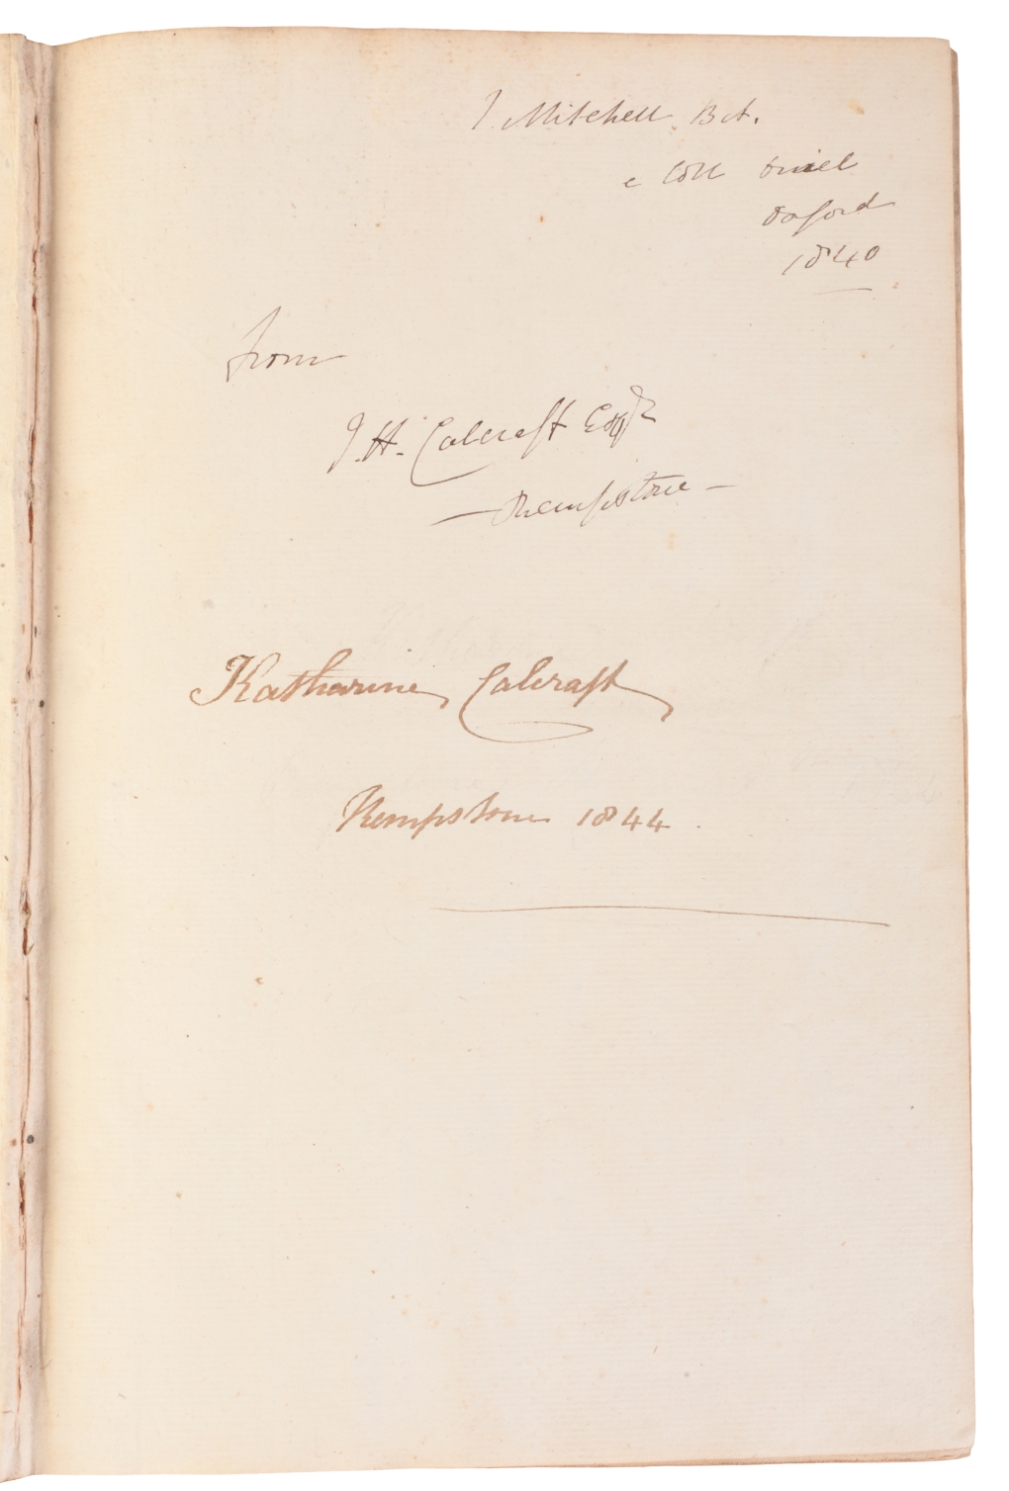 J Mitchell. B A.
e Coll Oriel
Oxford
1840
from
J. H. Calcraft Esqr
— Rempstone —
Katharine Calcraft
Rempstone 1844